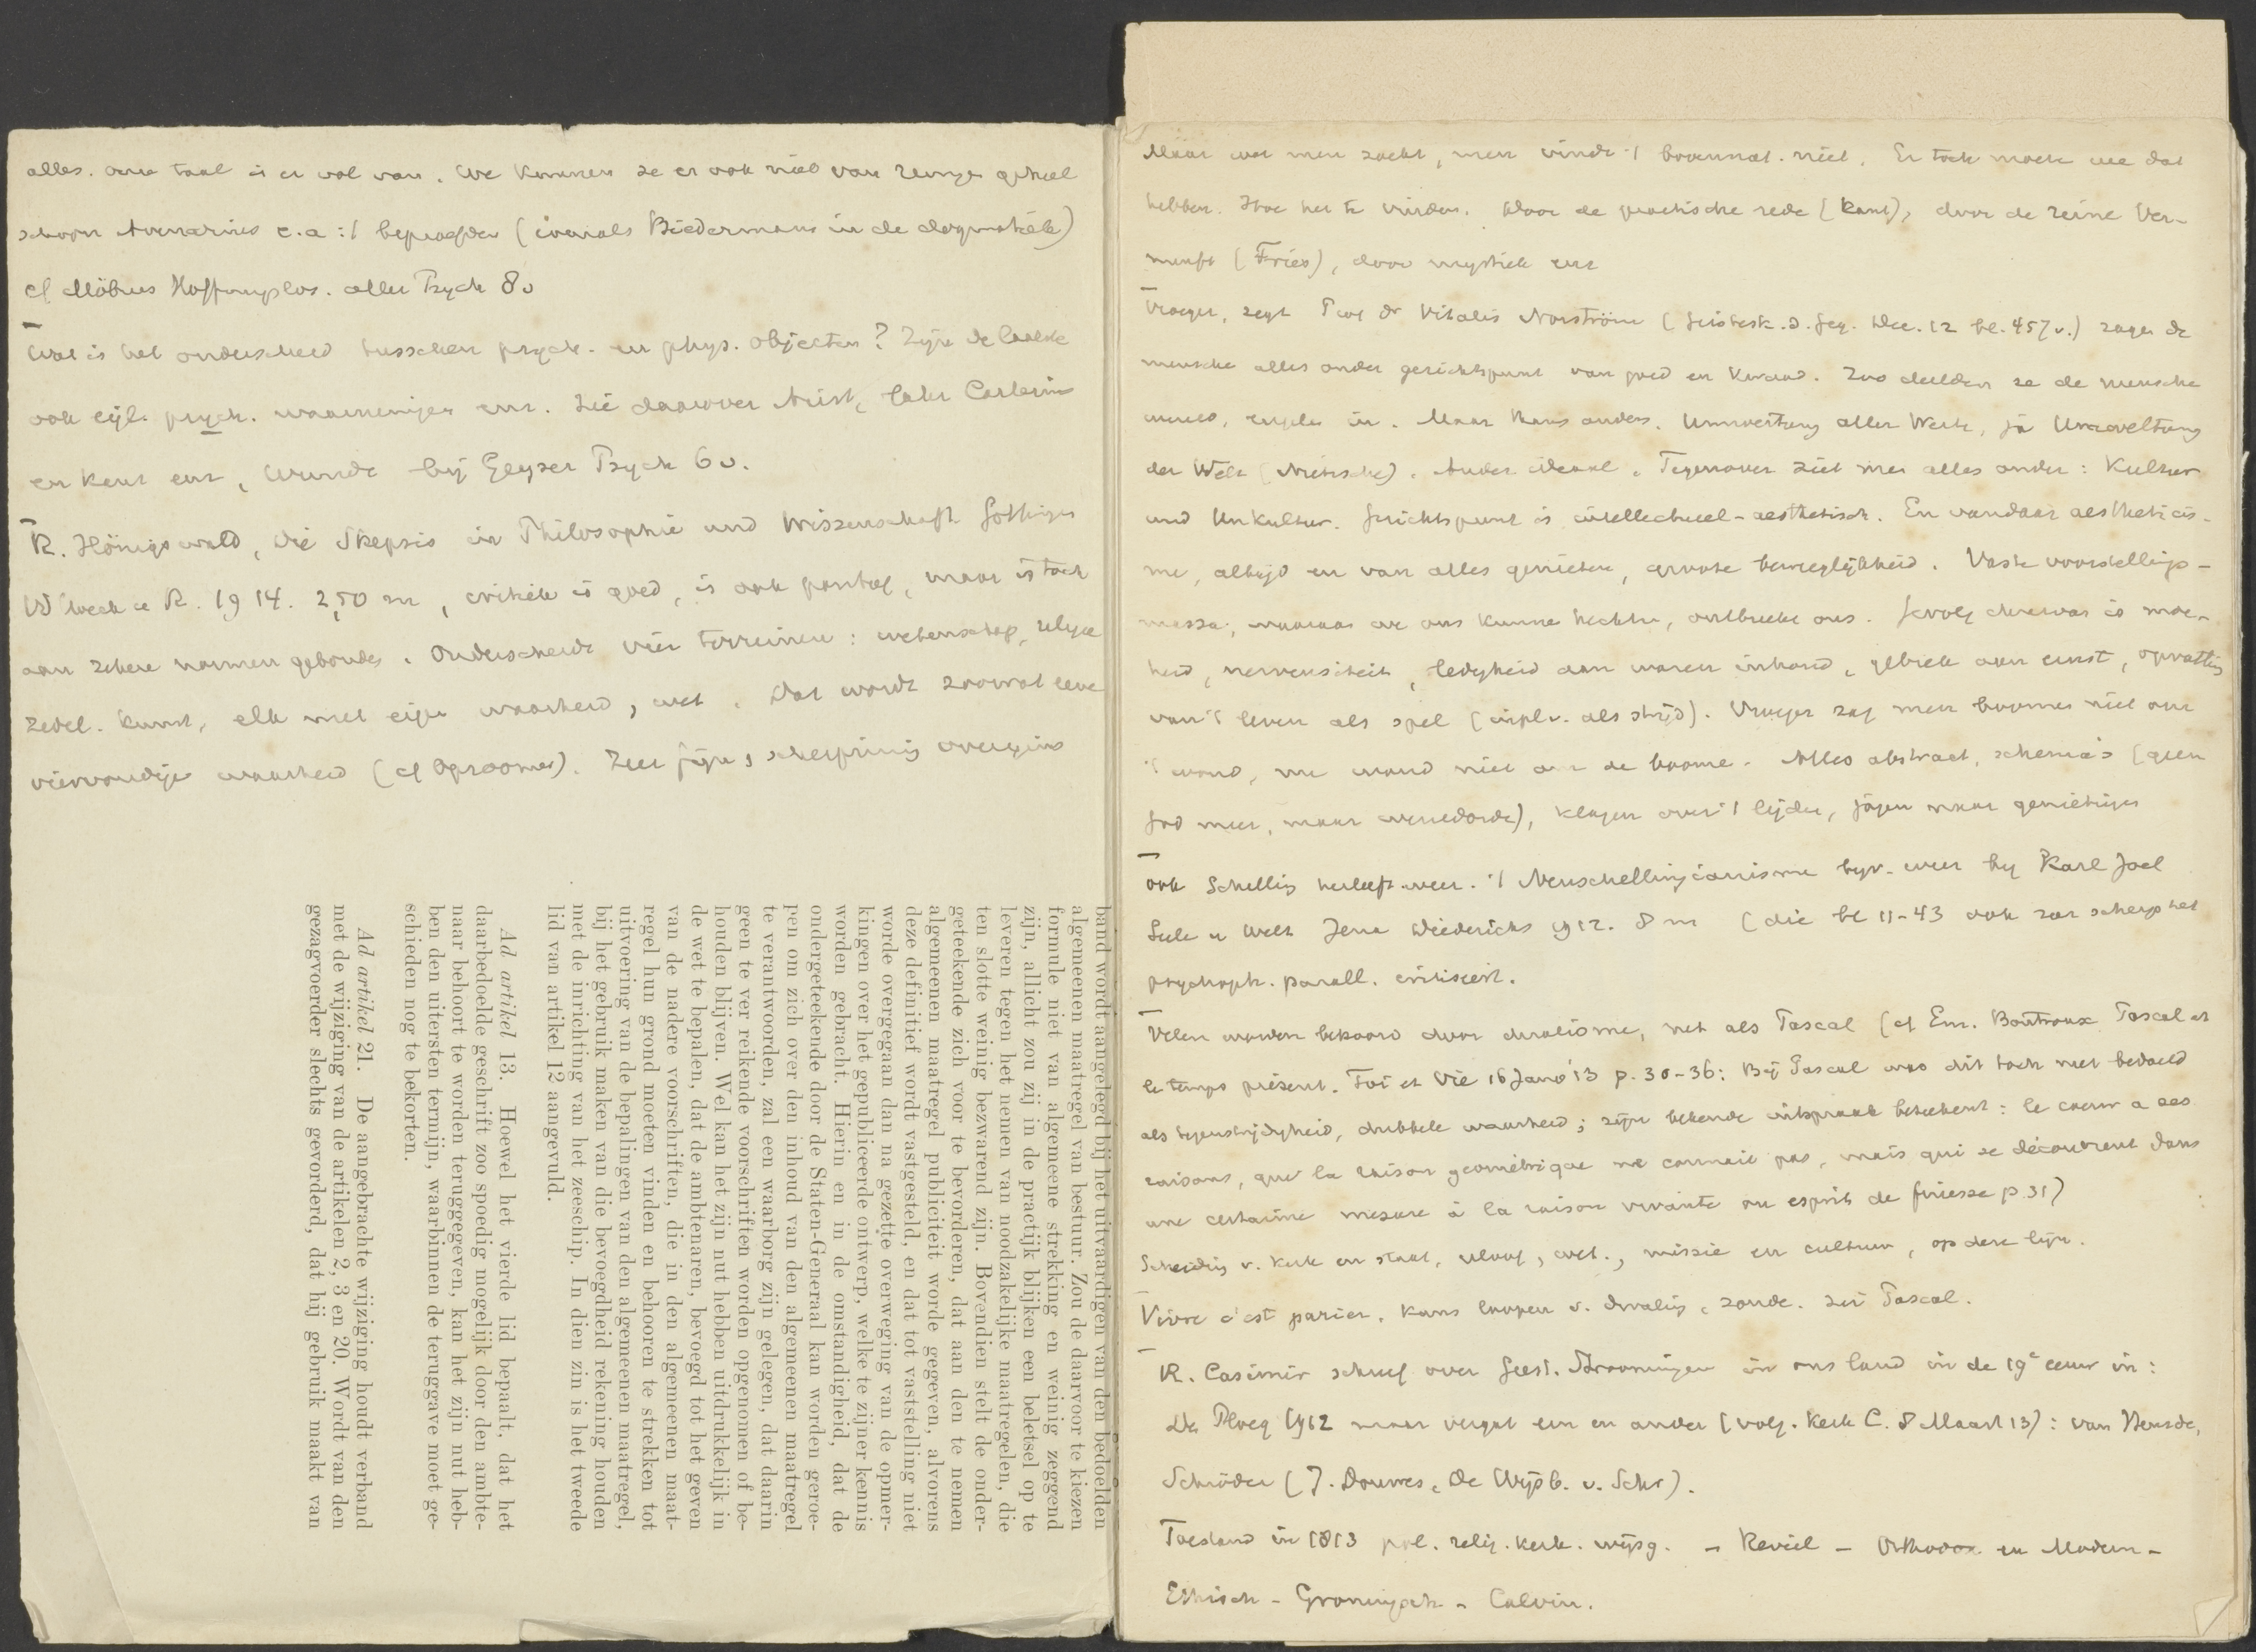 alles. onze taal is er vol van. We kunnen ze er ook niet van reinigen geheel
schoon Avenarius e.a. 't beproefden (evenals Biedermann in de dogmatiek)
cf Möbius Hoffnungslos. aller Psych 8v
Wat is het onderscheid tusschen psych. en phys. objecten? Zijn de laatste
ook eigl. psych. waarnemingen enz. Zie daarover Arist, later Cartesius
en Kant enz, Wundt bij Geyser Psych 6v.
R. Hönigswald, Die Skepsis in Philosophie und Wissenschaft Göttingen
V'hoeck u R. 1914. 2,50 m, critiek is goed, is ook positief, maar is toch
aan zekere normen gebonden. Onderscheidt vier terreinen: wetenschap, religie
zedel. kunst, elk met eigen waarheid, wet. Dat wordt zoowat eene
viervoudige waarheid (cf Opzoomer). Zeer fijn, scherpzinnig overigens
band wordt aangelegd bij het uitvaardigen van den bedoelden
algemeenen maatregel van bestuur. Zou de daarvoor te kiezen
formule niet van algemeene strekking en weinig zeggend
zijn, allicht zou zij in de practijk blijken een beletsel op te
leveren tegen het nemen van noodzakelijke maatregelen, die
ten slotte weinig bezwarend zijn. Bovendien stelt de onder-
geteekende zich voor te bevorderen, dat aan den te nemen
algemeenen maatregel publiciteit worde gegeven, alvorens
deze definitief wordt vastgesteld, en dat tot vaststelling niet
worde overgegaan dan na gezette overweging van de opmer-
kingen over het gepubliceerde ontwerp, welke te zijner kennis
worden gebracht. Hierin en in de omstandigheid, dat de
ondergeteekende door de Staten-Generaal kan worden geroe-
pen om zich over den inhoud van den algemeenen maatregel
te verantwoorden, zal een waarborg zijn gelegen, dat daarin
geen te ver reikende voorschriften worden opgenomen of be-
houden blijven. Wel kan het zijn nut hebben uitdrukkelijk in
de wet te bepalen, dat de ambtenaren, bevoegd tot het geven
van de nadere voorschriften, die in den algemeenen maat-
regel hun grond moeten vinden en behooren te strekken tot
uitvoering van de bepalingen van den algemeenen maatregel,
bij het gebruik maken van die bevoegdheid rekening houden
met de inrichting van het zeeschip. In dien zin is het tweede
lid van artikel 12 aangevuld.
Ad artikel 13. Hoewel het vierde lid bepaalt, dat het
daarbedoelde geschrift zoo spoedig mogelijk door den ambte-
naar behoort te worden teruggegeven, kan het zijn nut heb-
ben den uitersten termijn, waarbinnen de teruggave moet ge-
schieden nog te bekorten.
Ad artikel 21. De aangebrachte wijziging houdt verband
met de wijziging van de artikelen 2, 3 en 20. Wordt van den
gezagvoerder slechts gevorderd, dat hij gebruik maakt van
Maar wat men zoekt, men vindt 't bovennat. niet. En toch moeten we dat
hebben. Hoe het te vinden. Door de practische rede (Kant), door de reine Ver-
nunft (Fries), door mystiek enz
Vroeger, zegt Prof Dr Vitalis Norström (Geistesk. d. Geg. Dec. 12 bl. 457v.) zagen de
menschen alles onder gezichtspunt van goed en kwaad. Zoo deelden ze de menschen
in. Maar thans anders. Umwertung aller Werte, ja Umweltung
der Welt (Nietzsche). Ander ideaal. Tegenover ziet men alles onder: Kultur
und Unkultur. Gezichtspunt is intellectueel-aesthetisch. En vandaar aestheticis-
me, altijd en van alles genieten, groote bewegelijkheid. Vaste voorstellings-
massa, waaraan we ons kunnen hechten, ontbreekt ons. Gevolg daarvan is moe-
heid, nervositeit, ledigheid aan waren inhoud, gebrek aan ernst, opvatting
van 't leven als spel (in pl. v. als strijd). Vroeger zag men boomen niet om
't woud, nu woud niet om de boomen. Alles abstract, schema's (geen
God meer, maar wereldorde), klagen over 't lijden, jagen naar genietingen
ook Schelling herleeft weer. 't Neuschellingianisme bijv. weer bij Karl Joel
Seele u Welt Jena Diederichs 1912. 8 m (die bl 11-43 ook zeer scherp het
psychoph. parall. critiseert.
Velen worden bekoord door dualisme, net als Pascal (cf Em. Boutroux Pascal et
le temps présent. Foi et Vie 16 Janv '13 p. 30-36: Bij Pascal was dit toch niet bedoeld
als tegenstrijdigheid, dubbele waarheid; zijn bekende uitspraak beteekent: le coeur a ses
raisons, que la raison géométrique ne connait pas, mais qui se découvrent dans
une certaine mesure à la raison vivante ou esprit de finesse p. 31)
Scheiding v. kerk en staat, geloof, wet., missie en cultuur, op deze lijn.
Vivre c'est parier. Kans loopen v. dwaling, zonde. Zei Pascal.
R. Casimir schreef over Geest. Stroomingen in ons land in de 19e eeuw in:
De Ploeg 1912 maar vergat een en ander (volg. Kerk C. 8 Maart 13): van Heusde,
Schröder (J. Douwes, De Wijsb. v. Schr).
Toestand in 1813 pol. relig. kerk. wijsg. - Reveil - Orthodox en Modern -
Ethisch - Groningsch - Calvin.